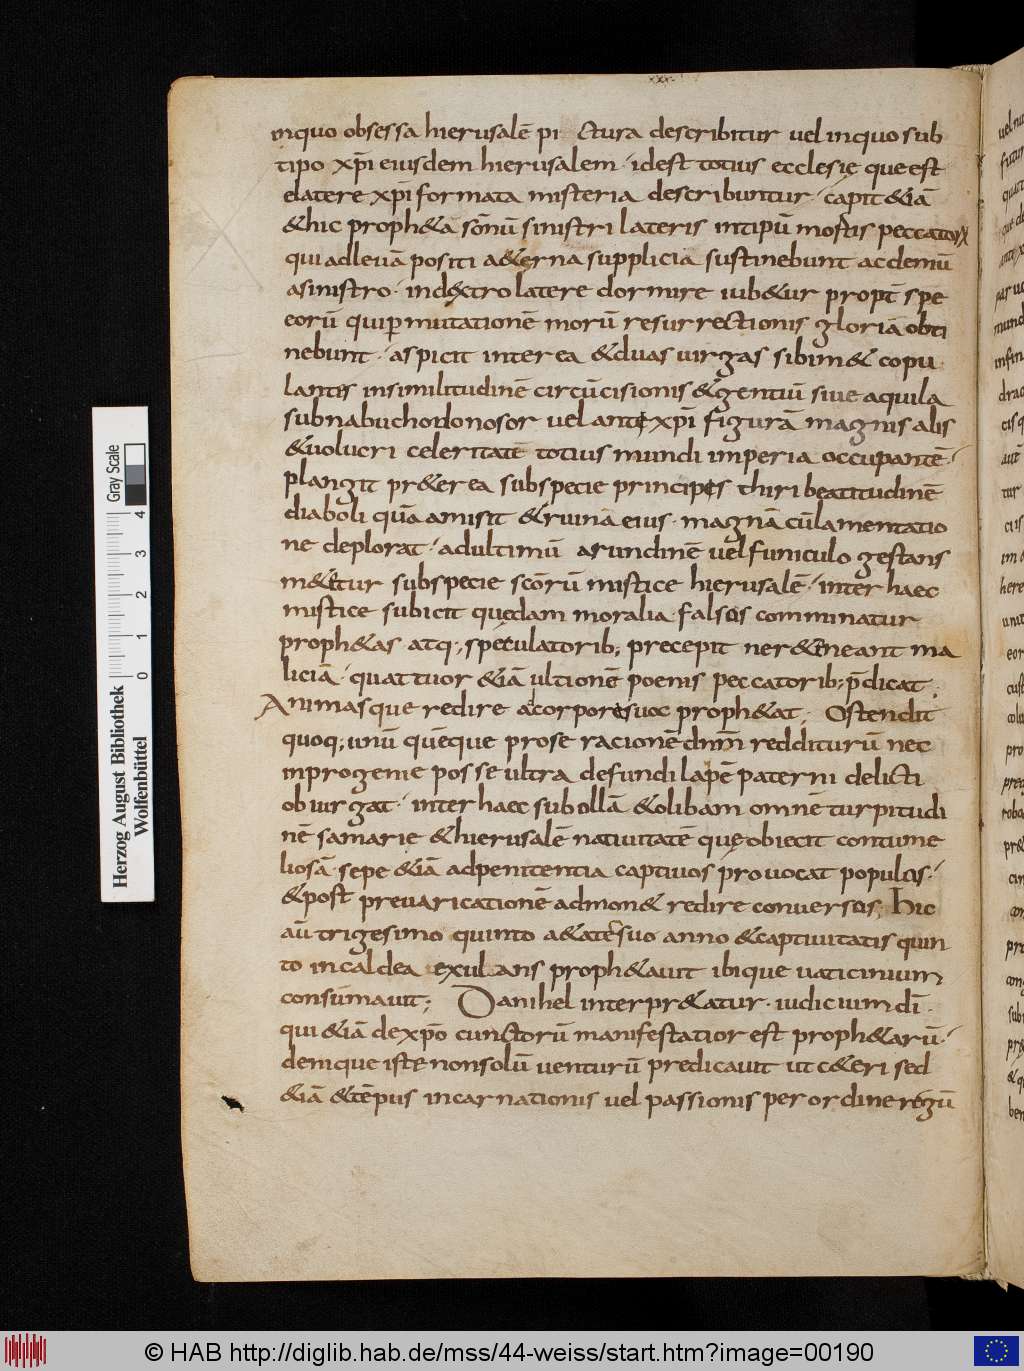 inquo obsessa hierusalē pi ctura describitur vel inquo sub
tipo xp̄i eiusdem hierusalem · idest totius ecclesię que est
elatere xp̄i formata misteria describuntur · capit &iā
&hic proph&a sōnū sinistri lateris intipū mortis peccatorꝝ
qui adlevā positi a&erna supplicia sustinebunt ac demū
asinistro · indextro latere dormire iub&ur propt̄ spe
eorū quiꝑmutationē morū resurrectionis gloriā obti
nebunt · aspicit interea &duas virgas sibim& copu
lantes insimilitudinē circūcisionis &gentiū sive aquila
subnabuchodonosor vel antexp̄i figurā magnis alis
&volucri celeritatē totius mundi imperia occupantē ·
plangit pr&erea subspecie principes thiri beatitudinē
diaboli quā amisit &ruinā eius · magnā cūlamentatio
ne deplorat · adultimū arundinē vel funiculo gestans
m&etur subspecie scōrū mistice hierusalē · inter haec
mistice subicit quędam moralia · falsos comminatur
proph&as atq; speculatorib; precepit ner&eneant ma
liciā · quattuor &iā ultionē poenis peccatorib; p̄dicat ·
Animasque redire acorporesuoc proph&at · Ostendit
quoq; unū quēque prose racionē dn̄m redditurū nec
inprogenie posse ultra defundi lapē paterni delicti
obiurgat · inter haec sub ollā &olibam omnē turpitudi
nē samarię &hierusalē nativitatē quę obiecit contume
liosā · sepe &iā adpenitentia captivos provocat populos ·
&post prevaricationē admon& redire conversos; Hic
aū trigesimo quinto a&atesuo anno &captivitatis quin
to incaldea exulans proph&avit ibique vaticinium
consūmavit; Danihel interpr&atur · iudicium dī ·
qui &iā dexp̄o cunctorū manifestatior est proph&arū ·
demque iste nonsolū venturū predicavit ut c&eri sed
&iā &tēpus incarnationis vel passionis per ordine regū
Gray Scale
0 1 2 3 4
Herzog August Bibliothek
Wolfenbüttel
© HAB http://diglib.hab.de/mss/44-weiss/start.htm?image=00190